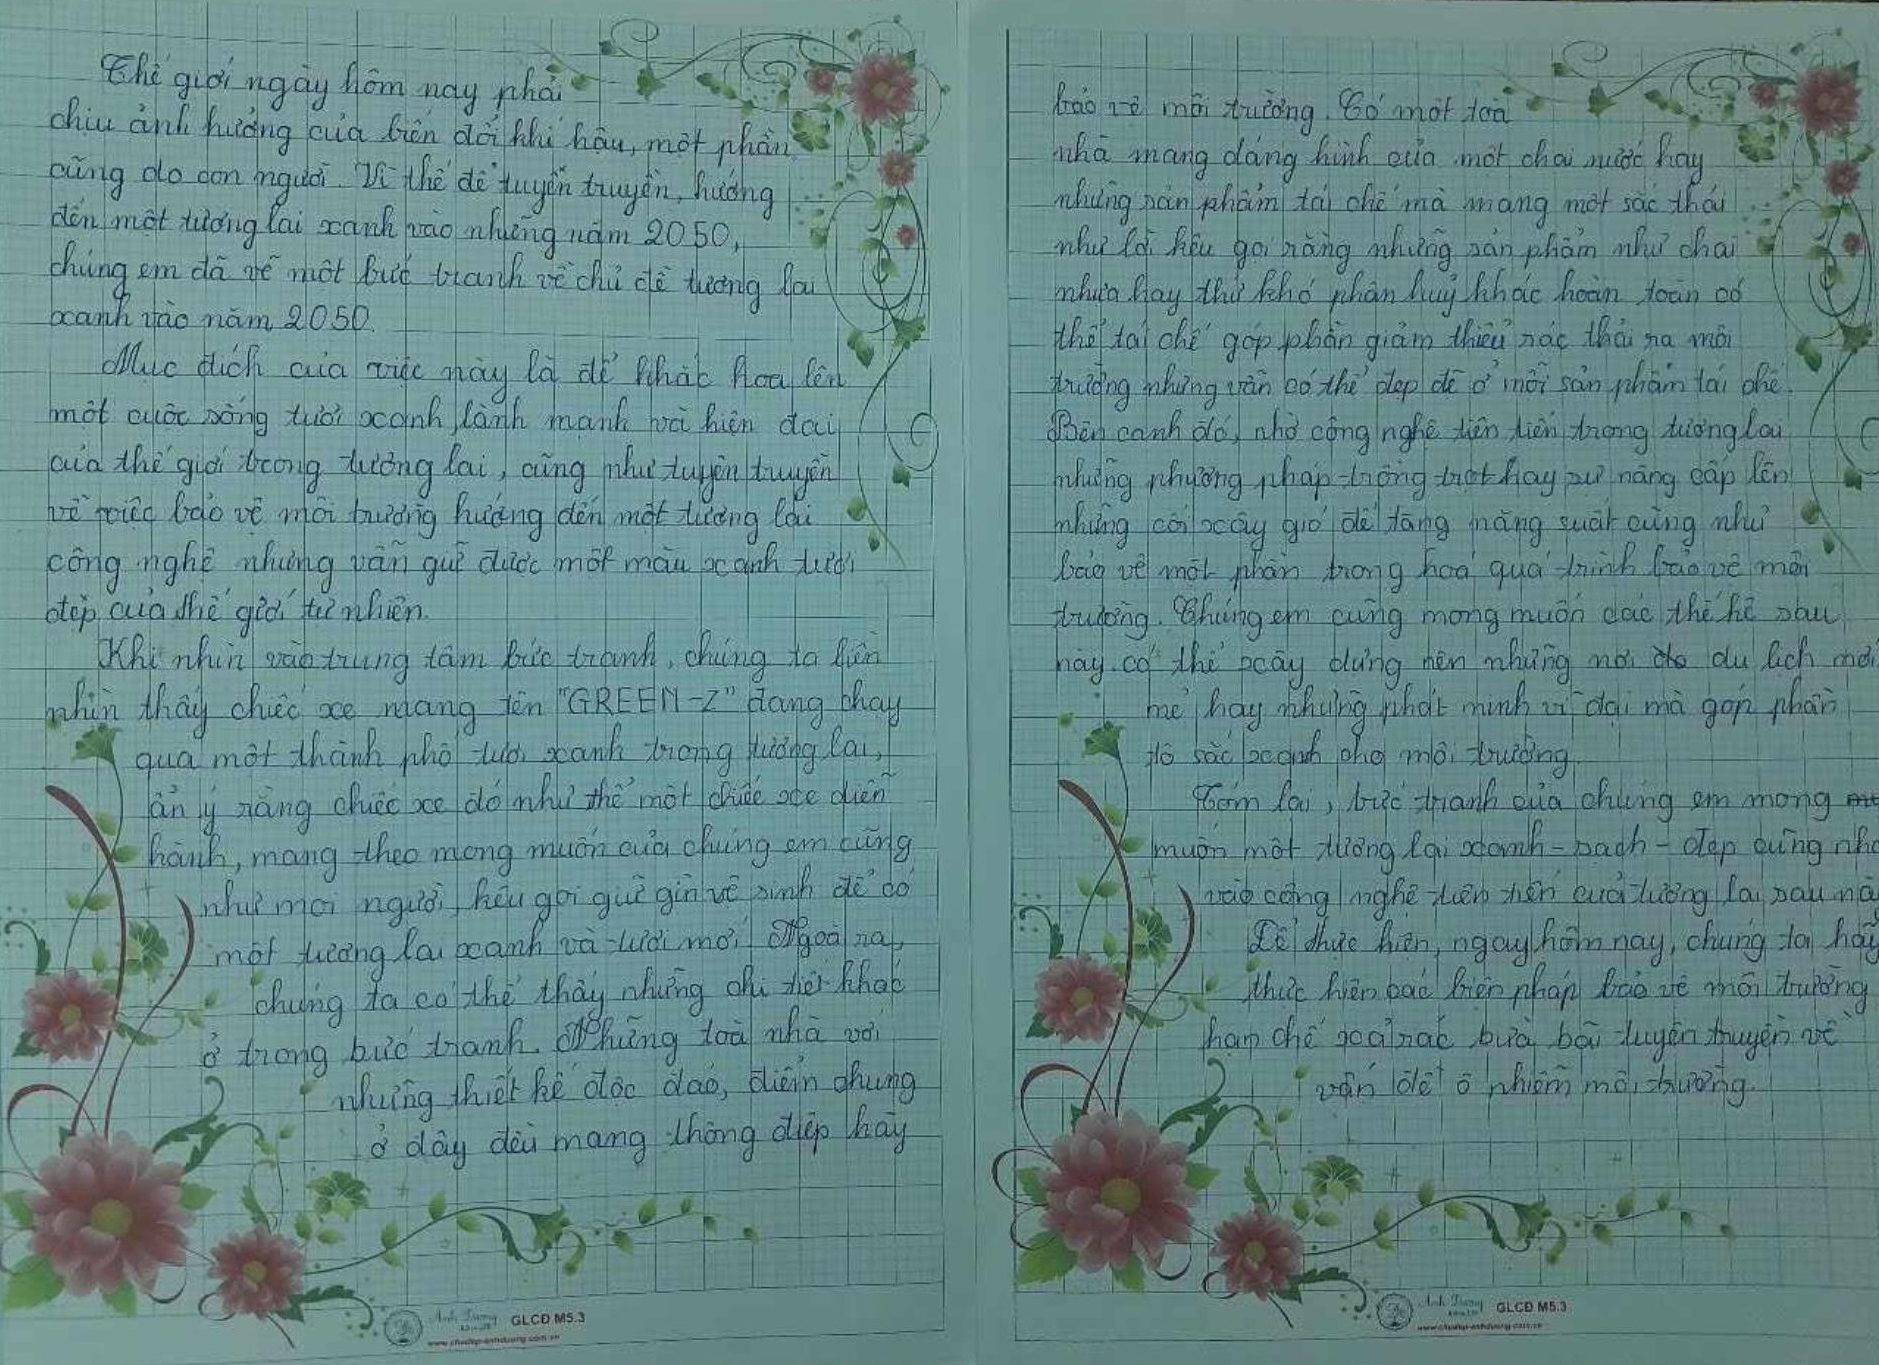 Thế giới ngày hôm nay phải
chịu ảnh hưởng của biến đổi khí hậu, một phần
cũng do con người. Vì thế để tuyên truyền, hướng
đến một tương lai xanh vào những năm 2050,
chúng em đã vẽ một bức tranh về chủ đề tương lai
xanh vào năm 2050.
Mục đích của việc này là để khắc hoạ lên
một cuộc sống tươi xanh, lành mạnh và hiện đại
của thế giới trong tương lai, cũng như tuyên truyền
về việc bảo vệ môi trường hướng đến một tương lai
công nghệ nhưng vẫn giữ được một màu xanh tươi
đẹp của thế giới tự nhiên.
Khi nhìn vào trung tâm bức tranh, chúng ta liền
nhìn thấy chiếc xe mang tên "GREEN-Z" đang chạy
qua một thành phố tươi xanh trong tương lai,
ẩn ý rằng chiếc xe đó như thể một chiếc xe diễn
hành, mang theo mong muốn của chúng em cũng
như mọi người, kêu gọi giữ gìn vệ sinh để có
một tương lai xanh và tươi mới. Ngoài ra,
chúng ta có thể thấy những chi tiết khác
ở trong bức tranh. Những toà nhà với
những thiết kế độc đáo, điểm chung
ở đây đều mang thông điệp hãy
bảo vệ môi trường. Có một toà
nhà mang dáng hình của một chai nước hay
những sản phẩm tái chế mà mang một sắc thái
như lời kêu gọi rằng những sản phẩm như chai
nhựa hay thứ khó phân huỷ khác hoàn toàn có
thể tái chế góp phần giảm thiểu rác thải ra môi
trường nhưng vẫn có thể đẹp đẽ ở mỗi sản phẩm tái chế.
Bên cạnh đó, nhờ công nghệ tiên tiến trong tương lai
những phương pháp trồng trọt hay sự nâng cấp lên
những cối xay gió để tăng năng suất cũng như
bảo vệ một phần trong hoá quá trình bảo vệ môi
trường. Chúng em cũng mong muốn các thế hệ sau
này có thể xây dựng nên những nơi du lịch mới
mẻ hay những phát minh vĩ đại mà góp phần
tô sắc xanh cho môi trường.
Tóm lại, bức tranh của chúng em mong
muốn một tương lai xanh - sạch - đẹp cũng nhờ
vào công nghệ tiên tiến của tương lai sau này
Để thực hiện, ngay hôm nay, chúng ta hãy
thực hiện các biện pháp bảo vệ môi trường
hạn chế xả rác bừa bãi tuyên truyền về
vấn đề ô nhiễm môi trường.
Anh Dương GLCD M5.3
Anh Dương GLCD M5.3